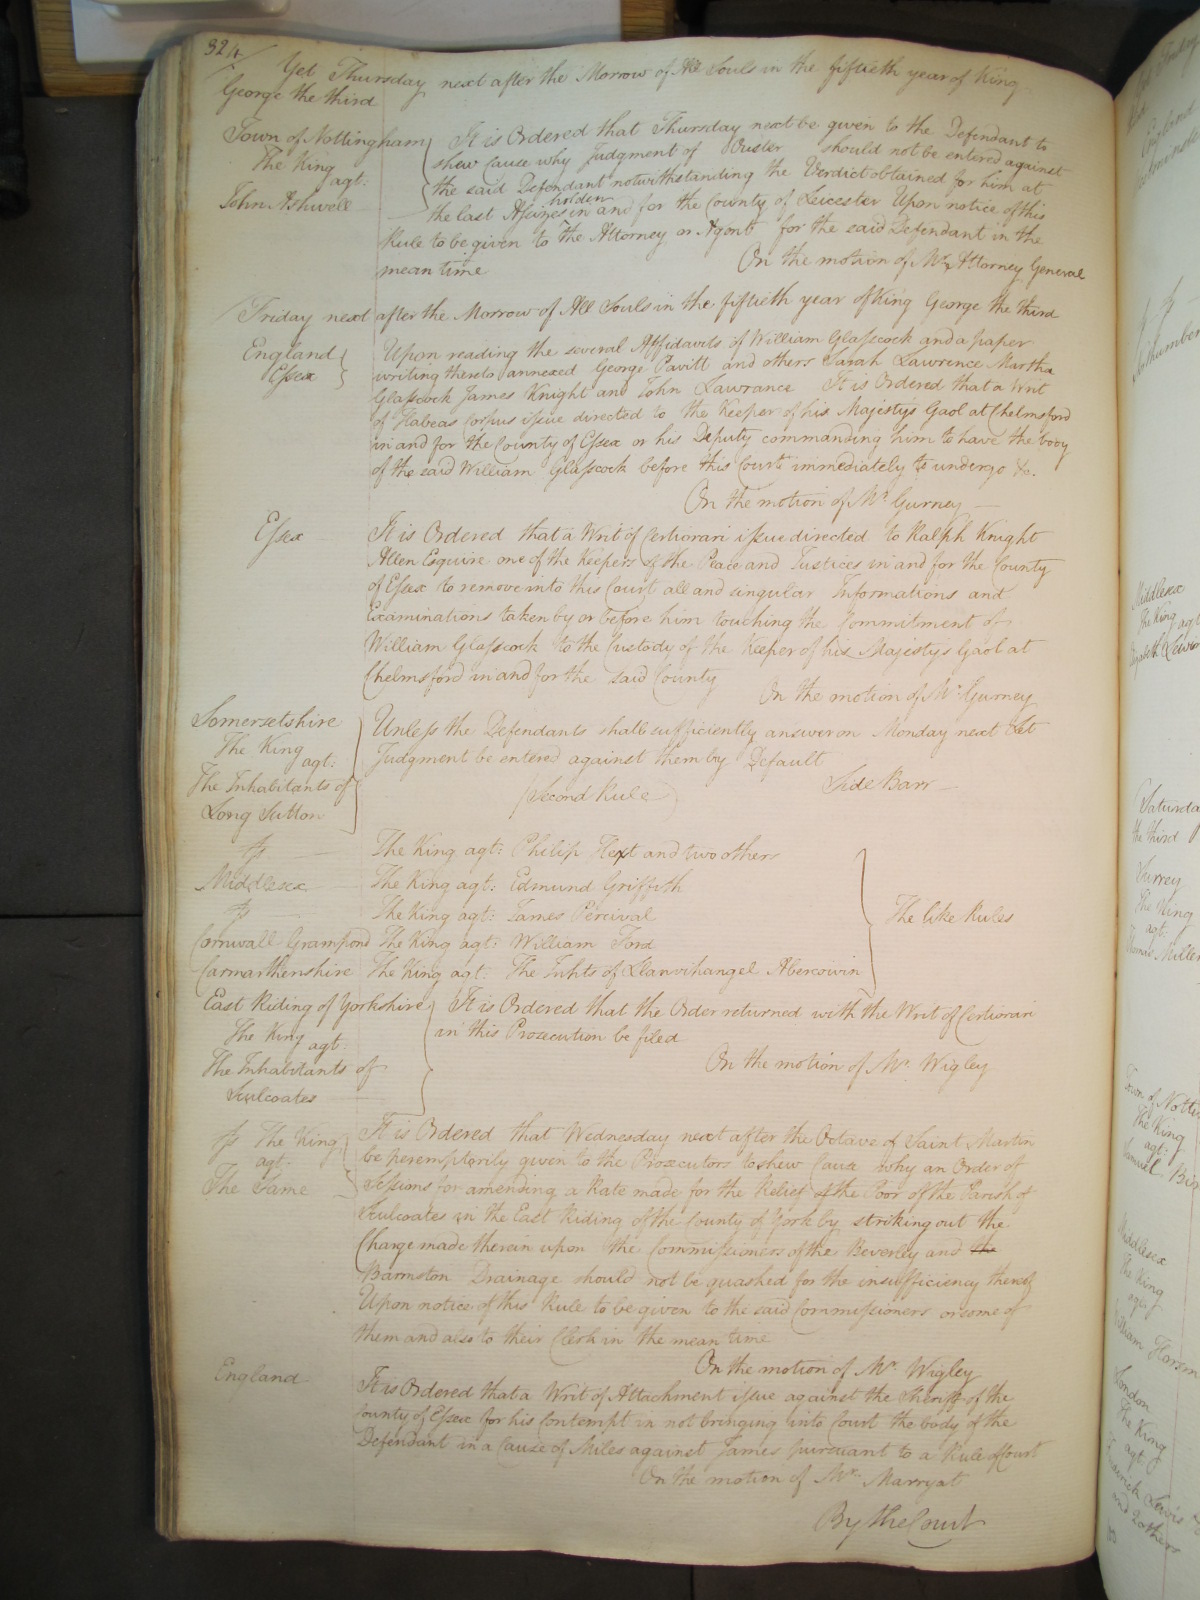 324
Yet Thursday next after the Morrow of All Souls in the fiftieth year of King
George the third
Town of Nottingham
The King
agt:
John Ashwell
It is Ordered that Thursday next be given to the Defendant to
shew cause why Judgment of Ouster should not be entered against
the said Defendant notwithstanding the Verdict obtained for him at
holden
the last Assizes in and for the County of Leicester Upon notice of this
Rule to be given to the Attorney or Agent for the said Defendant in the
mean time
On the motion of Mr. Attorney General
Friday next after the Morrow of All Souls in the fiftieth year of King George the third
England
Essex
Upon reading the several Affidavits of William Glasscock and a paper
writing thereto annexed George Pavitt and others Sarah Lawrence Martha
Glasscock James Knight and John Lawrance It is Ordered that a Writ
of Habeas Corpus issue directed to the Keeper of his Majestys Gaol at Chelmsford
in and for the County of Essex or his Deputy commanding him to have the body
of the said William Glasscock before this Court immediately to undergo &c.
On the motion of Mr. Gurney
Essex
It is Ordered that a Writ of Certiorari issue directed to Ralph Knight
Allen Esquire one of the Keepers of the Peace and Justices in and for the County
of Essex to remove into this Court all and singular Informations and
Examinations taken by or before him touching the Commitment of
William Glasscock to the Custody of the Keeper of his Majestys Gaol at
Chelmsford in and for the said County
On the motion of Mr. Gurney
Somersetshire
The King
agt:
The Inhabitants of
Long Sutton
Unless the Defendants shall sufficiently answer on Monday next Let
Judgment be entered against them by Default
(Second Rule)
Side Barr
The King agt: Philip Hext and two others
Middlesex The King agt: Edmund Griffith
The King agt: James Percival
The like Rules
Cornwall Grampond The King agt: William Ford
Carmarthenshire The King agt: The Inhts of Llanvihangel Abercowin
East Riding of Yorkshire
The King
agt:
The Inhabitants of
Sculcoates
It is Ordered that the Order returned with the Writ of Certiorari
in this Prosecution be filed
On the motion of Mr. Wigley
The King
agt.
The Same
It is Ordered that Wednesday next after the Octave of Saint Martin
be peremptorily given to the Prosecutors to shew Cause why an Order of
Sessions for amending a Rate made for the Relief of the Poor of the Parish of
Sculcoates in the East Riding of the County of York by striking out the
Charge made therein upon the Commissioners of the Beverley and the
Barmston Drainage should not be quashed for the insufficiency thereof
Upon notice of this Rule to be given to the said Commissioners or some of
them and also to their Clerk in the mean time
On the motion of Mr. Wigley
England
It is Ordered that a Writ of Attachment issue against the Sheriff of the
County of Essex for his Contempt in not bringing into Court the body of the
Defendant in a Cause of Miles against James pursuant to a Rule of Court
On the motion of Mr. Marryat
By the Court
Middlesex
The King agt
Saturda
the third
Surrey
The King
agt.
Town of Notti
The King
agt:
Samuel
Middlesex
The King
agt
London
The King
agt
and 2 others